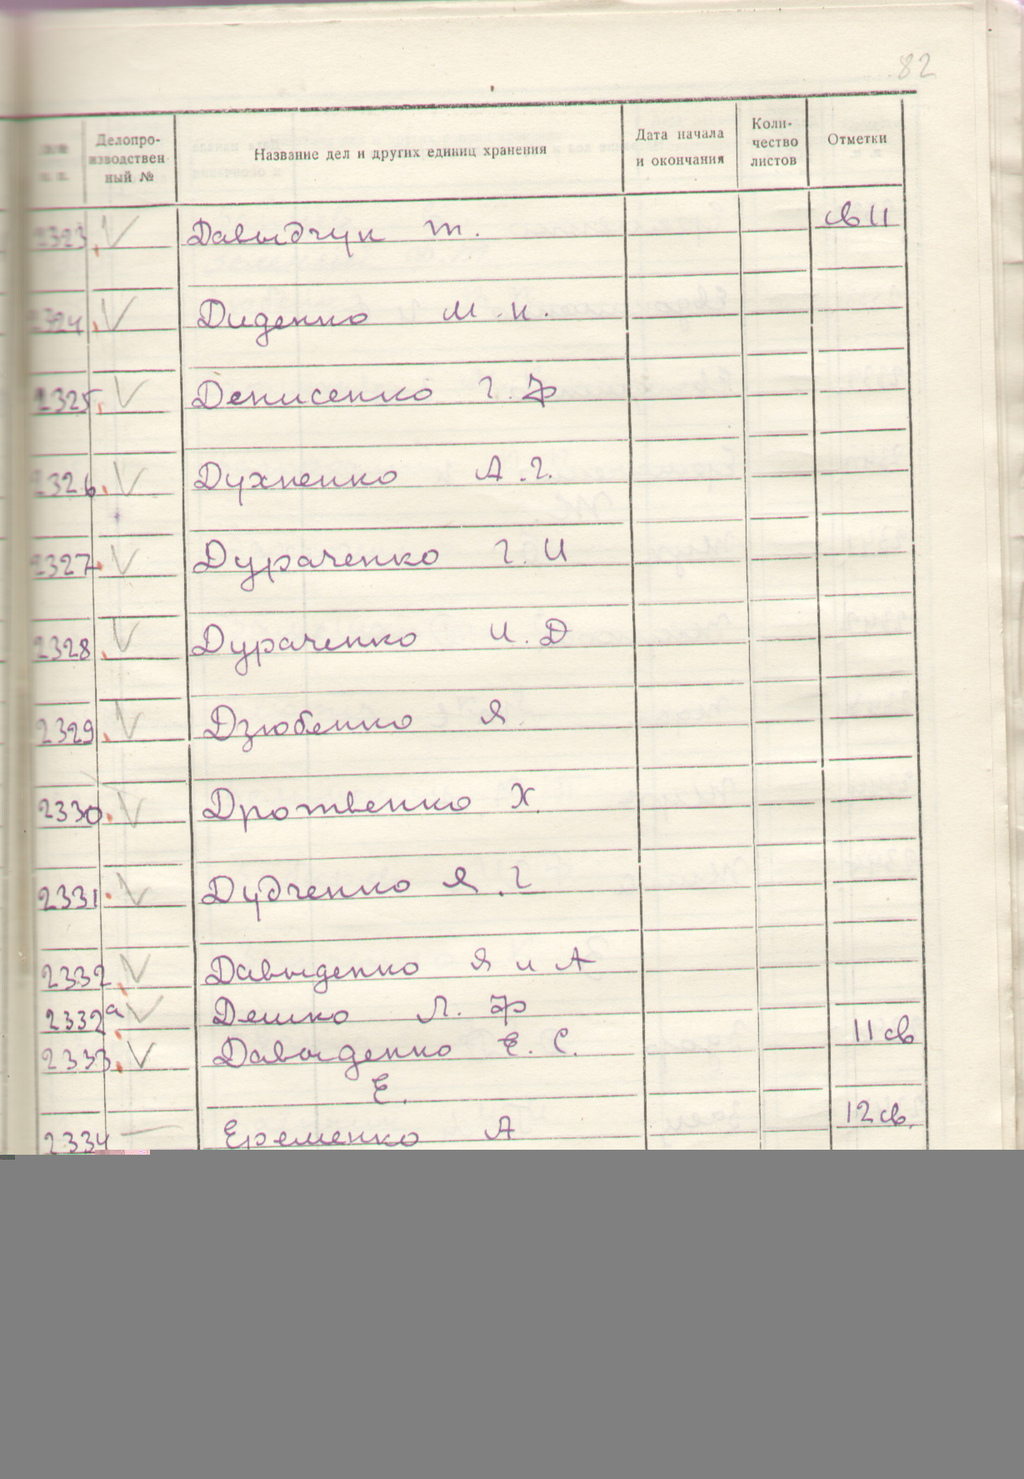 82
Делопро-
изводствен
ный №
Название дел и других единиц хранения
Дата начала
и окончания
Коли-
чество
листов
Отметки
2323. V Давыдчук Т. св 11
2324. V Диденко М. К.
2325. V Денисенко Г. Ф
2326. V Духненко А. Г.
2327. V Дураченко Г. И
2328. V Дураченко И. Д
2329. V Дзюбенко Я
2330. V Дротвенко Х.
2331. V Дудченко Я. Г
2332. V Давыденко Я и А
2332а. V Дешко Л. Ф
2333. V Давыденко Е. С. 11 св
Е.
2334 — Еременко А 12 св.